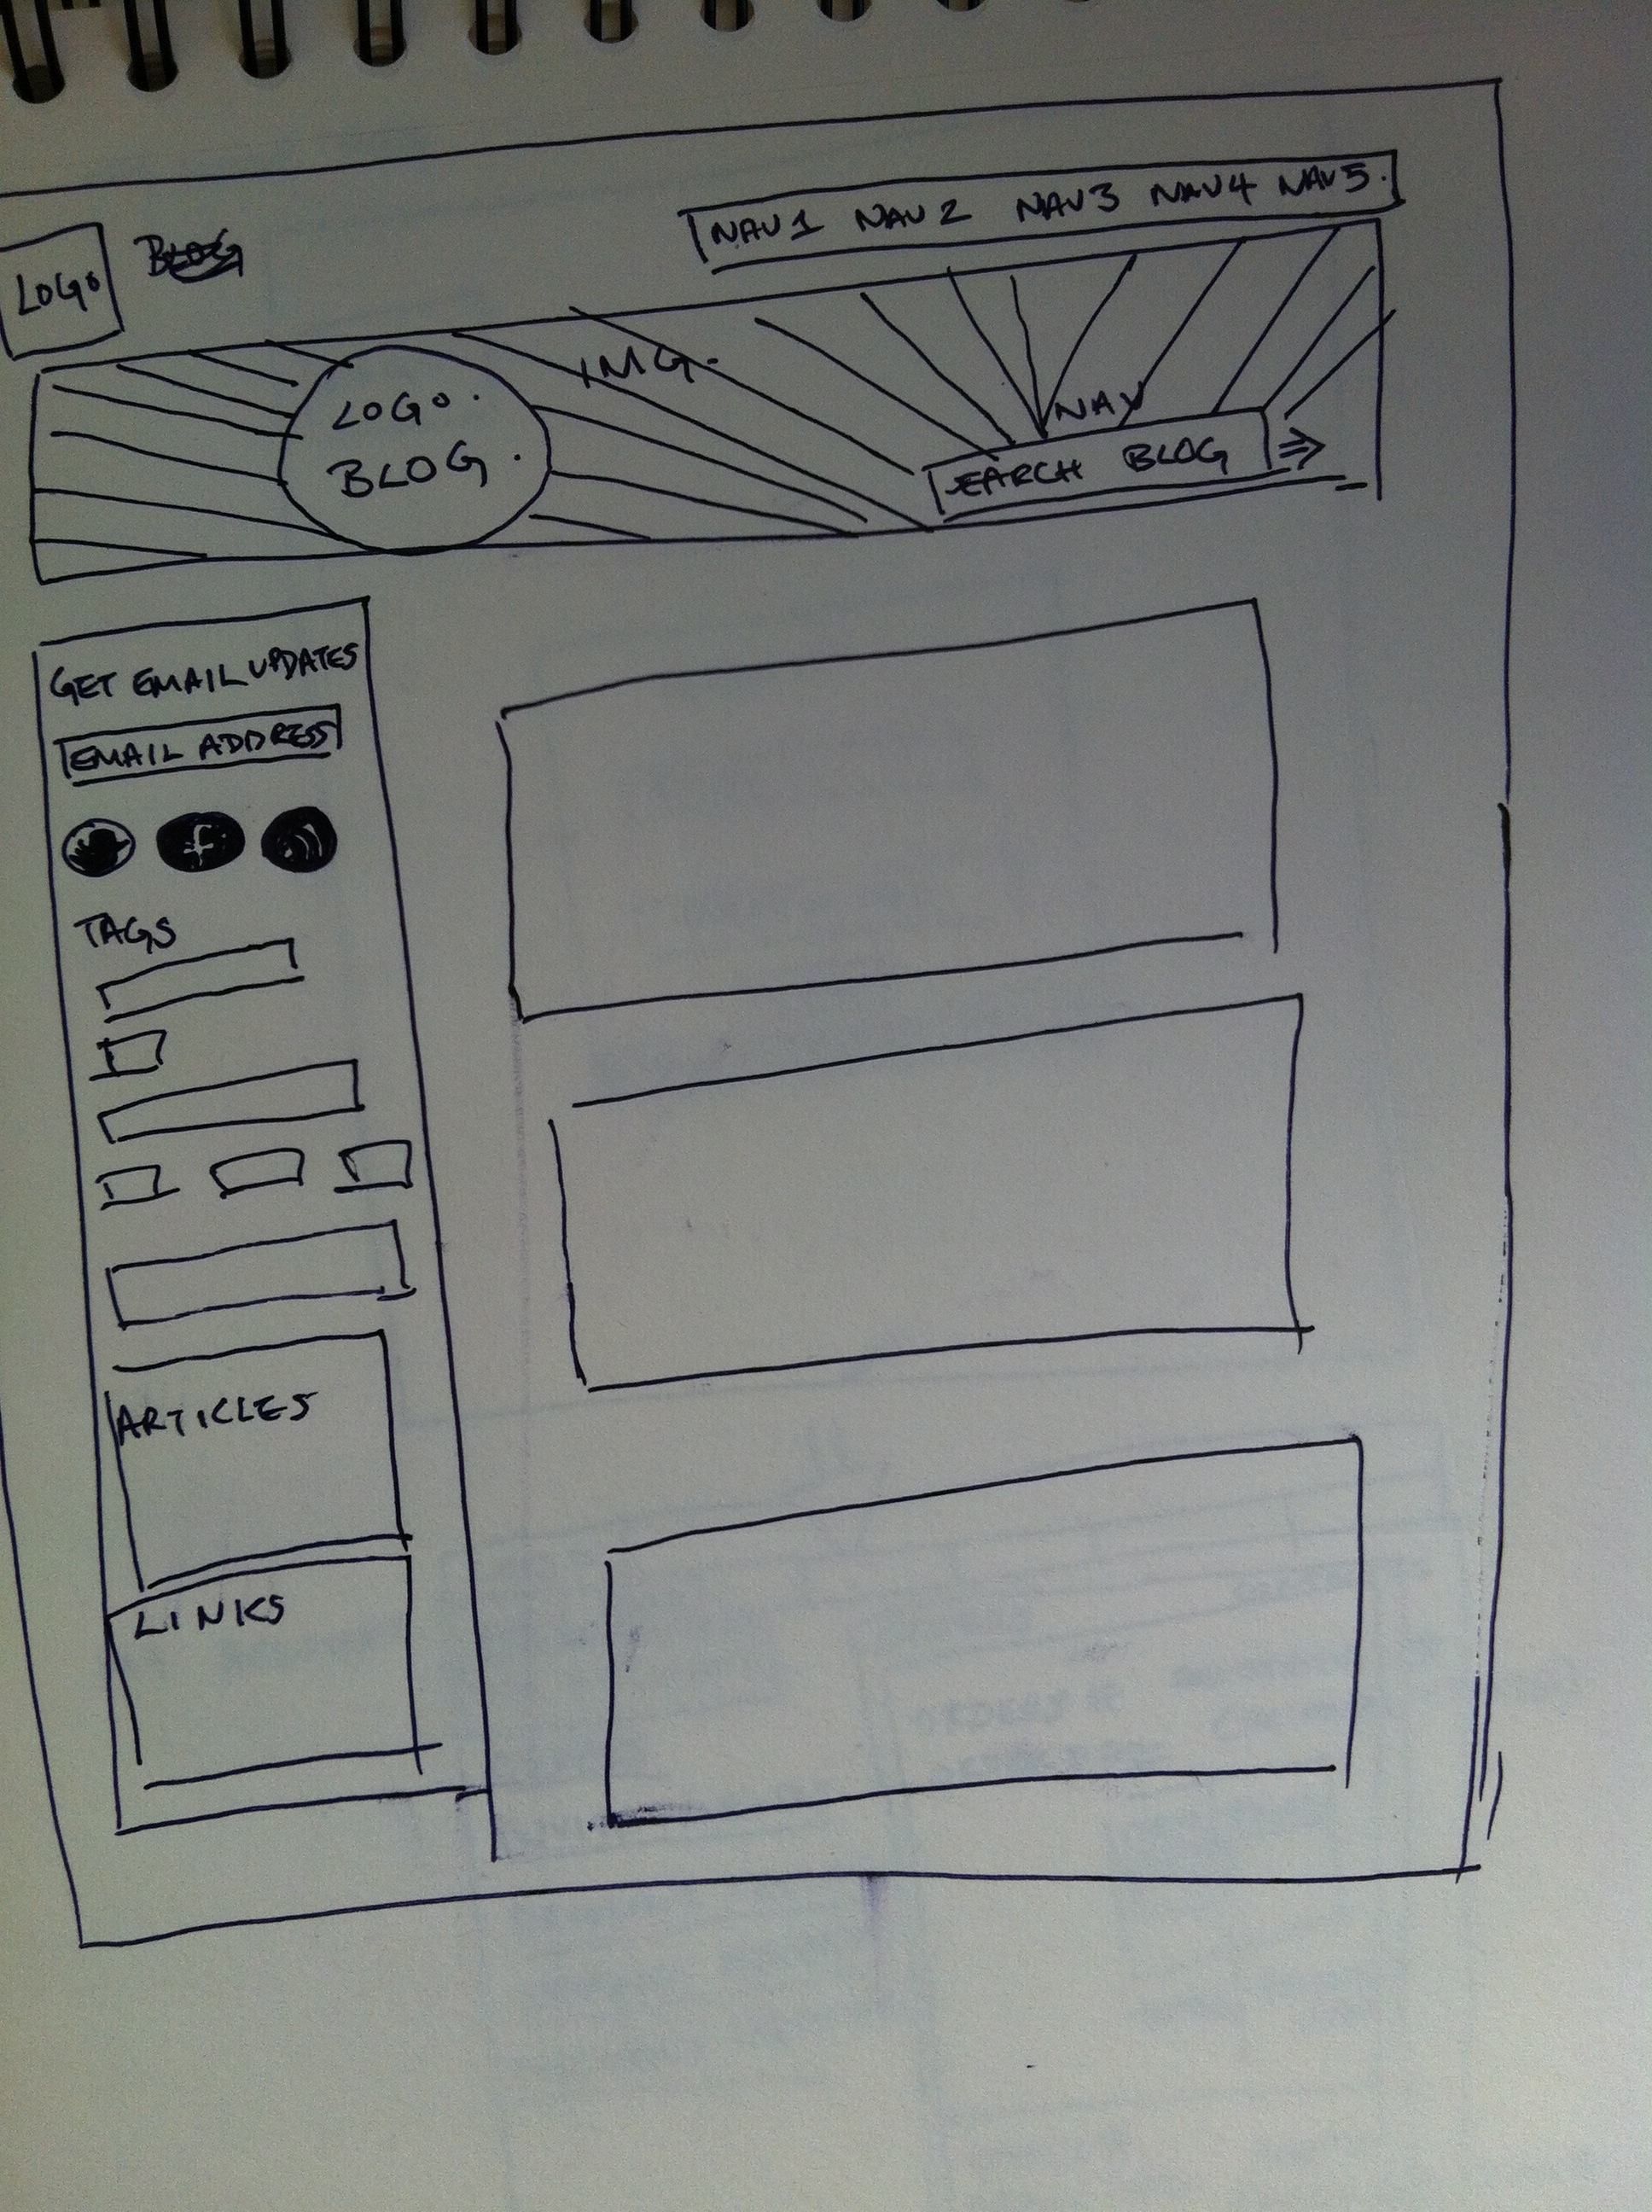 NAV1 NAV2 NAV3 NAV4 NAV5.
LOGO
BLOG
IMG.
LOGO.
BLOG.
NAV
SEARCH BLOG
GET EMAIL UPDATES
EMAIL ADDRESS
f
TAGS
ARTICLES
LINKS